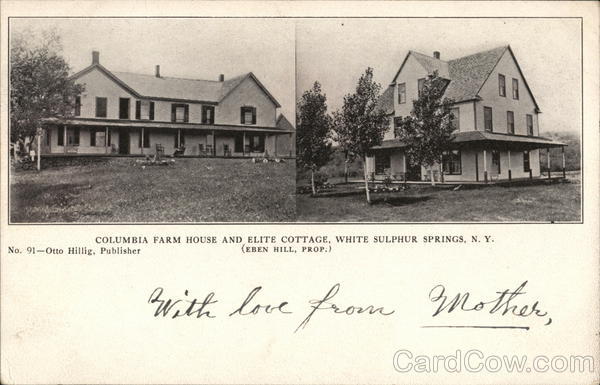 COLUMBIA FARM HOUSE AND ELITE COTTAGE, WHITE SULPHUR SPRINGS, N. Y.
No. 91—Otto Hillig, Publisher
(EBEN HILL, PROP.)
With love from Mother,
CardCow.com